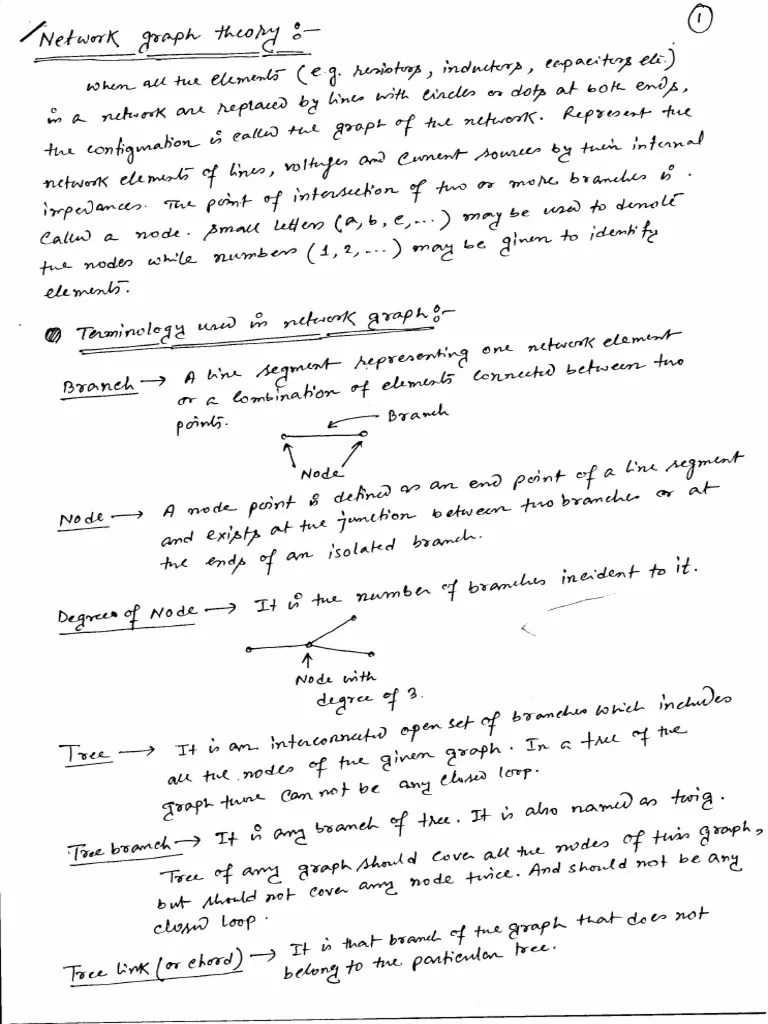 1
Network graph theory :-
When all the elements (e.g. resistors, inductors, capacitors etc.)
in a network are replaced by lines with circles or dots at both ends,
the configuration is called the graph of the network. Represent the
network elements of lines, voltages and current sources by their internal
impedances. The point of intersection of two or more branches is
called a node. Small letters (a, b, c, ...) may be used to denote
the nodes while numbers (1, 2, ...) may be given to identify
elements.
Terminology used in network graph :-
Branch → A line segment representing one network element
or a combination of elements connected between two
points.
Branch
Node
Node → A node point is defined as an end point of a line segment
and exists at the junction between two branches or at
the ends of an isolated branch.
Degree of Node → It is the number of branches incident to it.
Node with
degree of 3.
Tree → It is an interconnected open set of branches which includes
all the nodes of the given graph. In a tree of the
graph there can not be any closed loop.
Tree branch → It is any branch of tree. It is also named as twig.
Tree of any graph should cover all the nodes of this graph,
but should not cover any node twice. And should not be any
closed loop.
Tree link (or chord) → It is that branch of the graph that does not
belong to the particular tree.